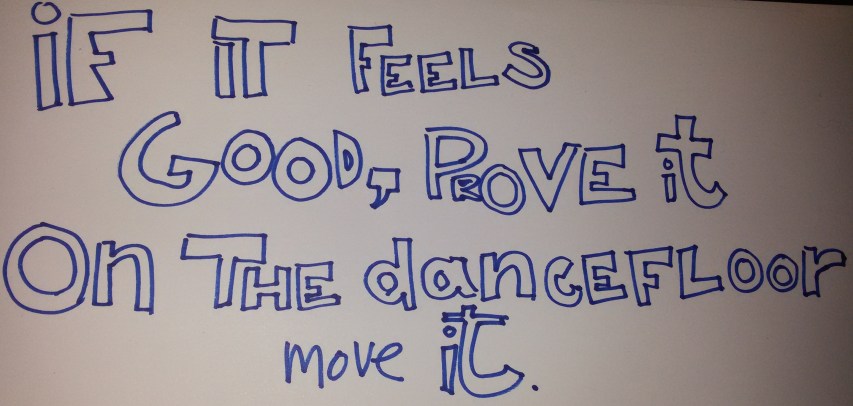 iF iT FEELS
GOOD, PROVE it
On THE dancEFLoor
move it.